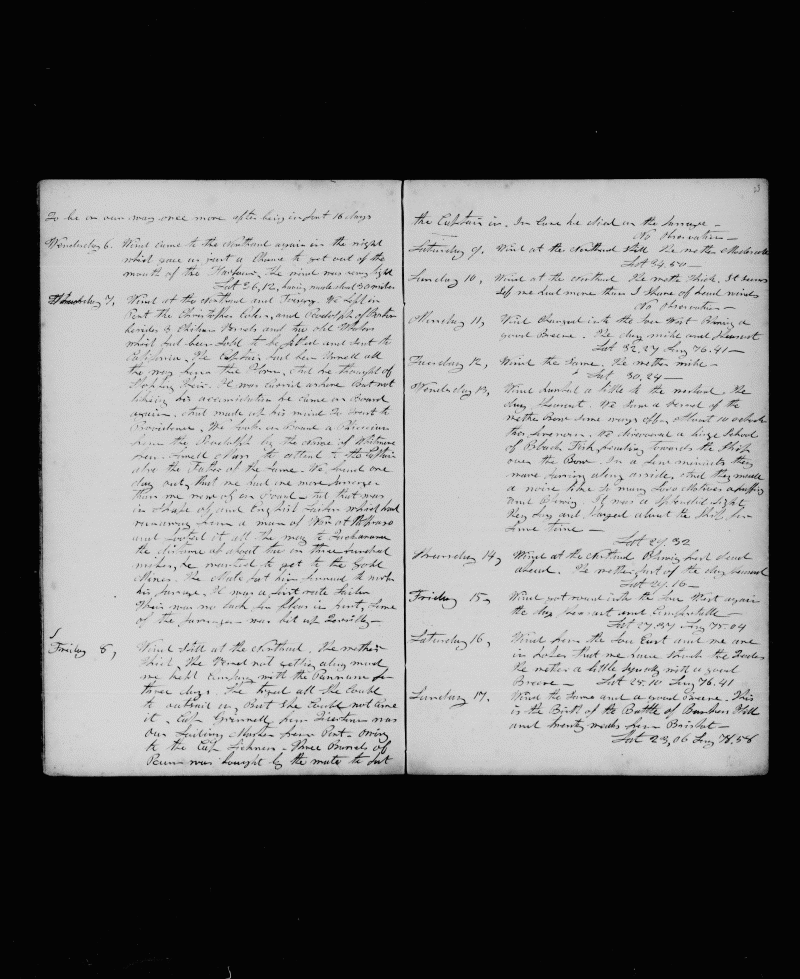 To be on our way once more after being in Port 16 days
Wensday 6. Wind came to the Northard again in the night
which gave us just a Chance to get out of the
mouth of the Harbour. The wind was very light
Lat 36,12, having made about 30 miles
Thursday 7, Wind at the Northard and Foggy. We left in
Port the Christopher and Rodolph of Boston
besides 2 Chilian Vessels and the old
which had been Sold to be fitted and Sent to
California. The Captain had been unwell all
the way from the and he thought of
Stopping their. He was carried ashore But not
liking his accomodation he came on Board
again. and made up his mind to trust to
Providence. We took on Board a Physician
from the Rodolph by the Name of Whitmore
from Lowell Mass to attend to the Captain
also the Father of the Same. We found one
day out, that we had one more Passenger
than we new of on Board and that was
in Shape of and English Sailor which had
runaway from a man of War at Valparaso
and footed it all the way to Talcahuana
the distance of about two or three hundred
miles, he wanted to get to the Gold
Mines. The Mate put him forward to work
his passage. He was a first rate Sailor
Their was no back for flour in port, Some
of the passengers was bit up
Friday 8, Wind Still at the Northard, the wether
thick, the Vessel not getting along much
we kept Company with the for
three days. She tryed all She Could
to outsail us, But She Could not Come
it, Capt Grinnell from was
our Sailing Master from Port owing
to the Capt Sickness. Three Barrels of
was bought by the mate to put
the Captain in. In Case he died on the passage
No Observation
Saturday 9. Wind at the Northard Still the wether Moderate
Lat 34,50
Sunday 10, Wind at the Northard the wether thick. It seems
as if we had more than a Share of head winds
No Observation
Monday 11, Wind Changed into the Sou West Blowing a
good Breeze. The day mild and pleasant
Lat 32,27 Lng 76.41
Tuesday 12, Wind the Same, the wether mild
Lat 30,24
Wensday 13, Wind hauled a little to the westard the
day pleasant. We Saw a Vessel off the
wether Bow Some ways off. About 10 oclock
this forenoon. We discovered a large School
of Black Fish heading towards the Ship
over the Bow. In a few minuits they
were along side, and they made
a noise like So many Loco Motives a puffing
and Blowing. It was a Splendid Sight
they and played about the Ship for
Some time
Lat 29.32
Thursday 14, Wind at the Northard Blowing hard dead
ahead. The wether part of the day pleasant
Lat 29.16
Friday 15, Wind got round into the Sou West again
the day pleasant and Comfortable
Lat 27.37 Lng 75.04
Saturday 16, Wind from the Sou East and we are
in hopes that we have Struck the Trades
the wether a little Squaly with a good
Breeze Lat 25.10 Lng 76.41
Sunday 17. Wind the Same and a good Breeze. This
is the Birth of the Battle of Bunkers Hill
and twenty weeks from Bristol
Lat 23,06 Lng 78,58